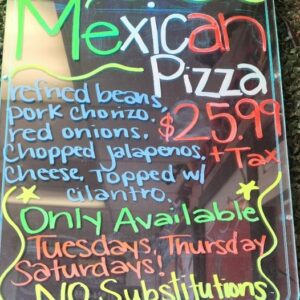 Mexican
Pizza
refried beans,
pork chorizo,
red onions, $25.99
Chopped Jalapeños, + Tax
Cheese, Topped w/
cilantro.
Only Available
Tuesdays, Thursday
Saturdays!
NO Substitutions